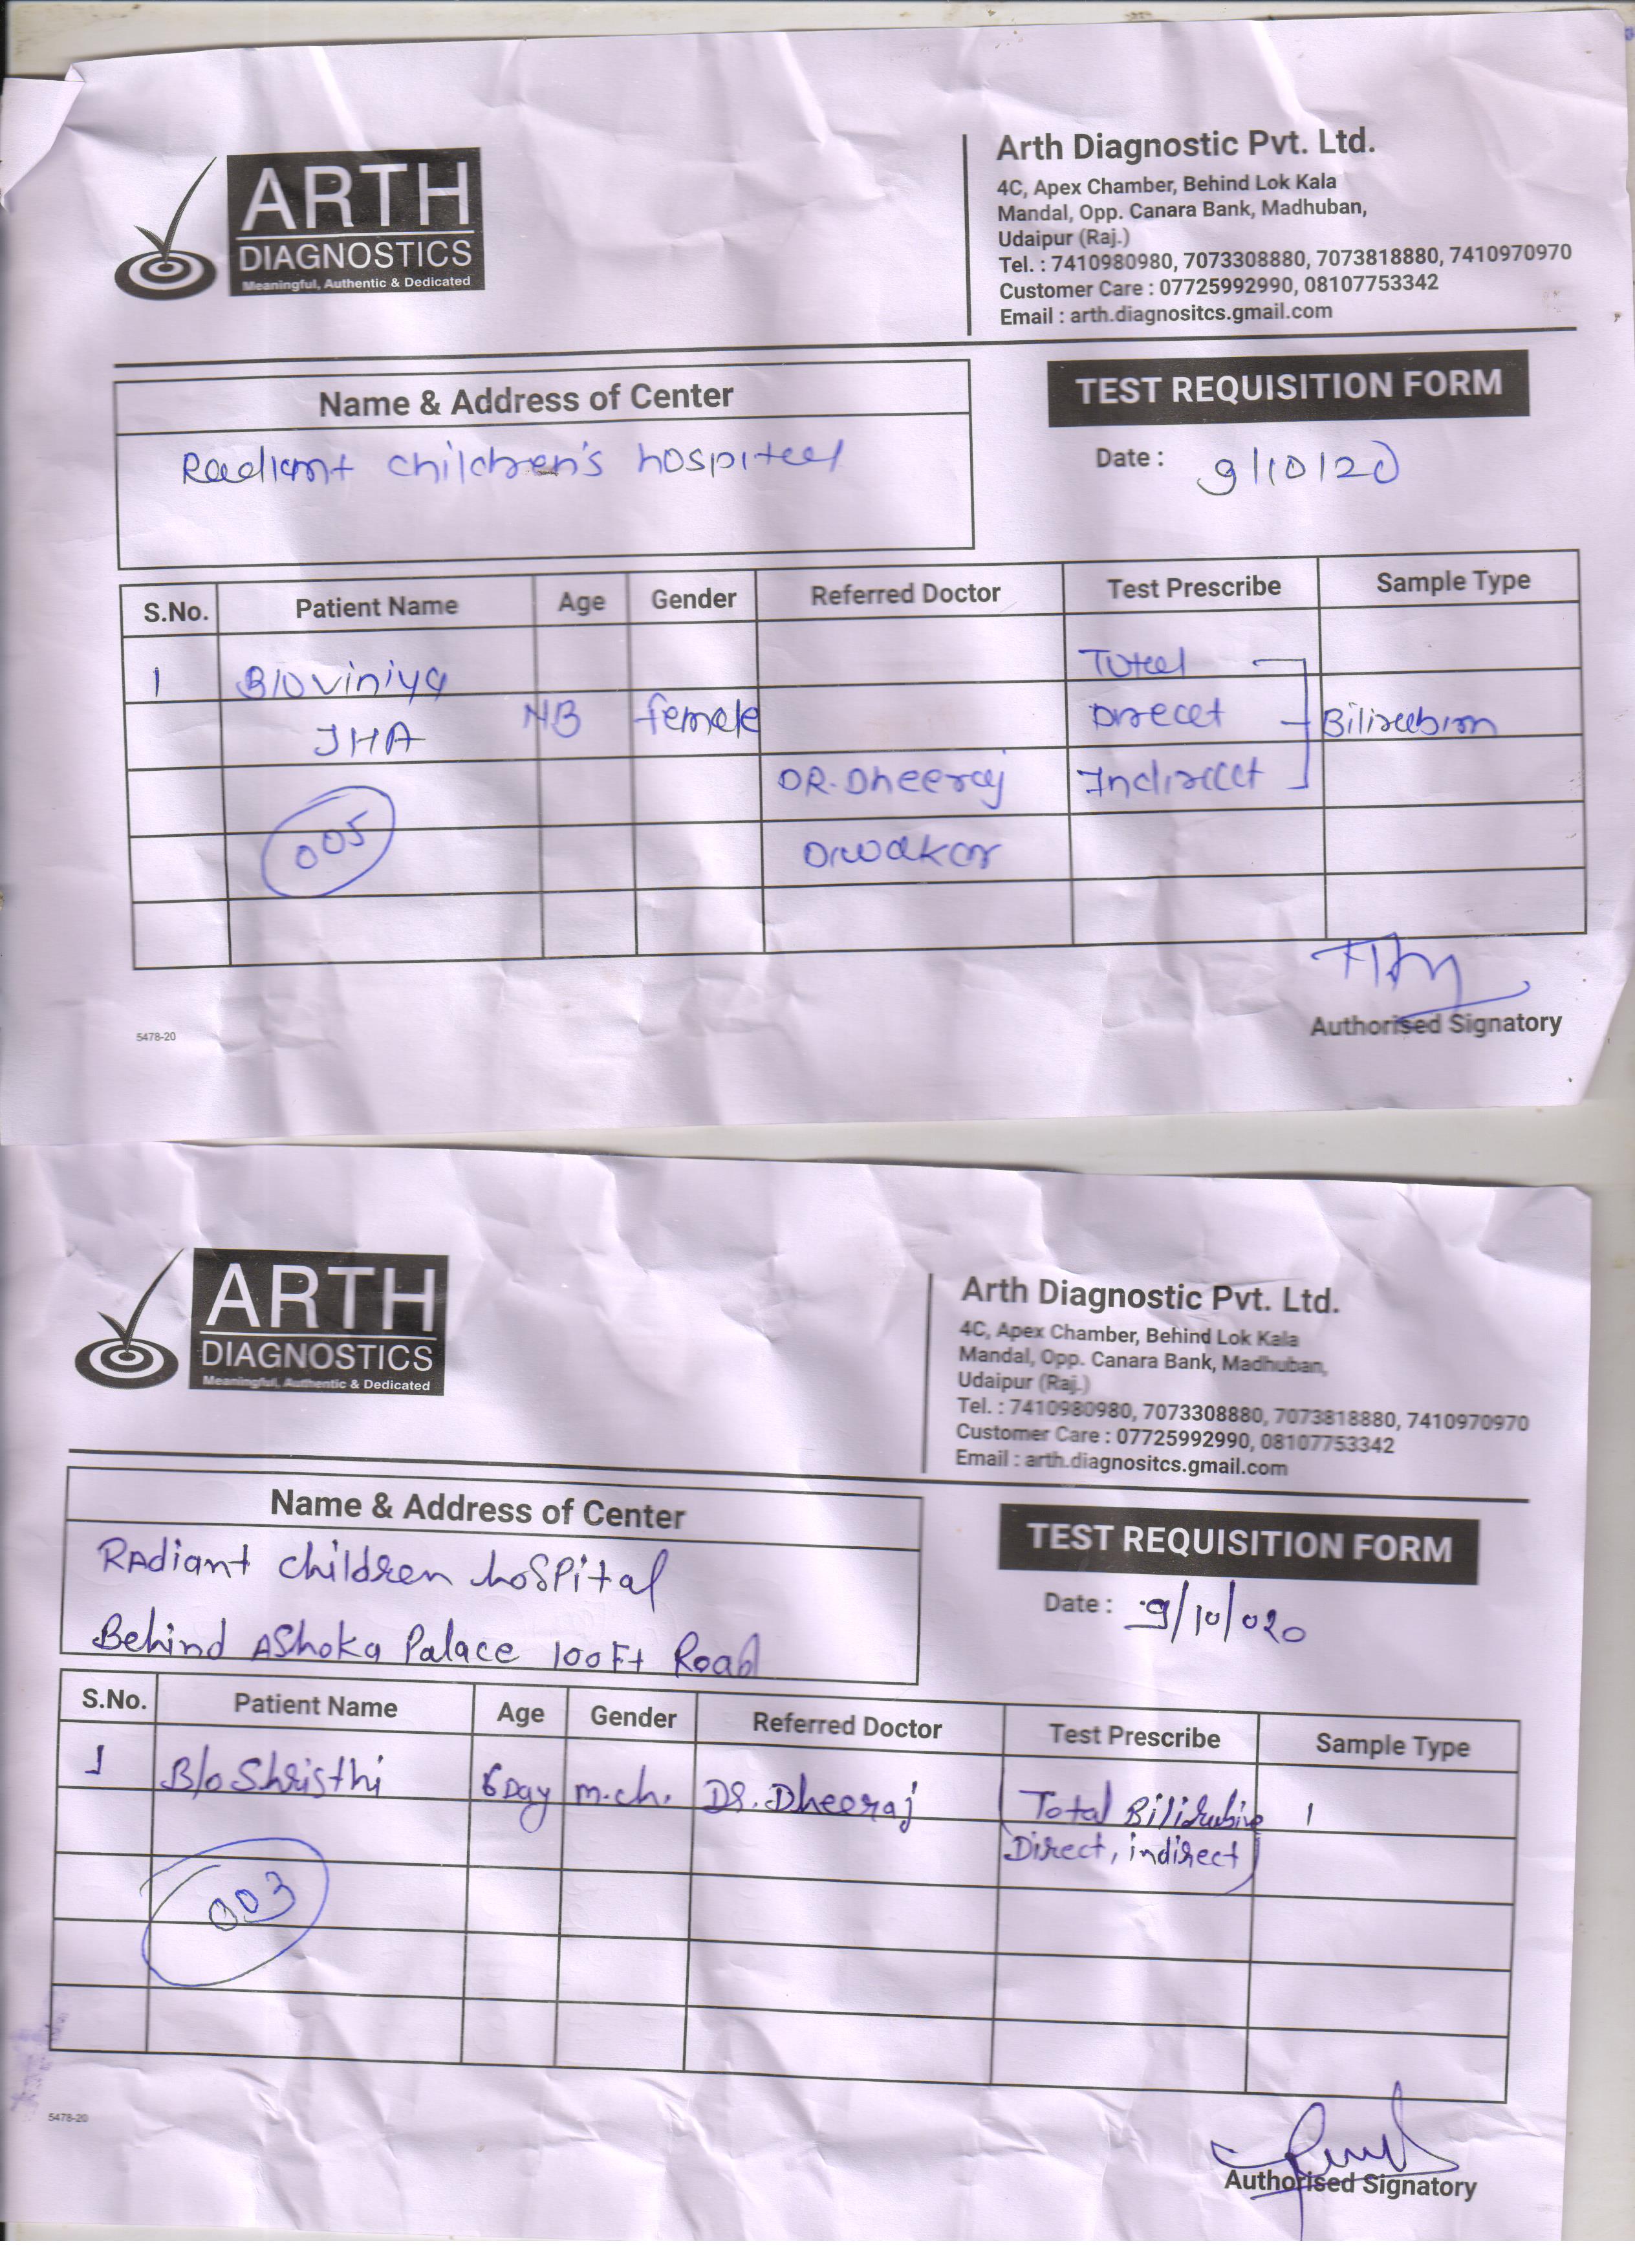 ARTH
DIAGNOSTICS
Meaningful, Authentic & Dedicated
Arth Diagnostic Pvt. Ltd.
4C, Apex Chamber, Behind Lok Kala
Mandal, Opp. Canara Bank, Madhuban,
Udaipur (Raj.)
Tel. : 7410980980, 7073308880, 7073818880, 7410970970
Customer Care : 07725992990, 08107753342
Email : arth.diagnositcs.gmail.com
Name & Address of Center
TEST REQUISITION FORM
Radiant children's hospital
Date : 9/10/20
S.No. Patient Name Age Gender Referred Doctor Test Prescribe Sample Type
1 B/O Viniya Total
JHA NB female Direct Bilirubin
DR. Dheeraj Indirect
005 Diwakar
Authorised Signatory
5478-20
ARTH
DIAGNOSTICS
Meaningful, Authentic & Dedicated
Arth Diagnostic Pvt. Ltd.
4C, Apex Chamber, Behind Lok Kala
Mandal, Opp. Canara Bank, Madhuban,
Udaipur (Raj.)
Tel. : 7410980980, 7073308880, 7073818880, 7410970970
Customer Care : 07725992990, 08107753342
Email : arth.diagnositcs.gmail.com
Name & Address of Center
TEST REQUISITION FORM
RAdiant children hoSPital
Behind AShoka Palace 100Ft Road
Date : 9/10/020
S.No. Patient Name Age Gender Referred Doctor Test Prescribe Sample Type
1 B/o Shristhi 6 Day m.ch. DR. Dheeraj (Total Bilirubin 1
Direct, indirect)
003
Authorised Signatory
5478-20